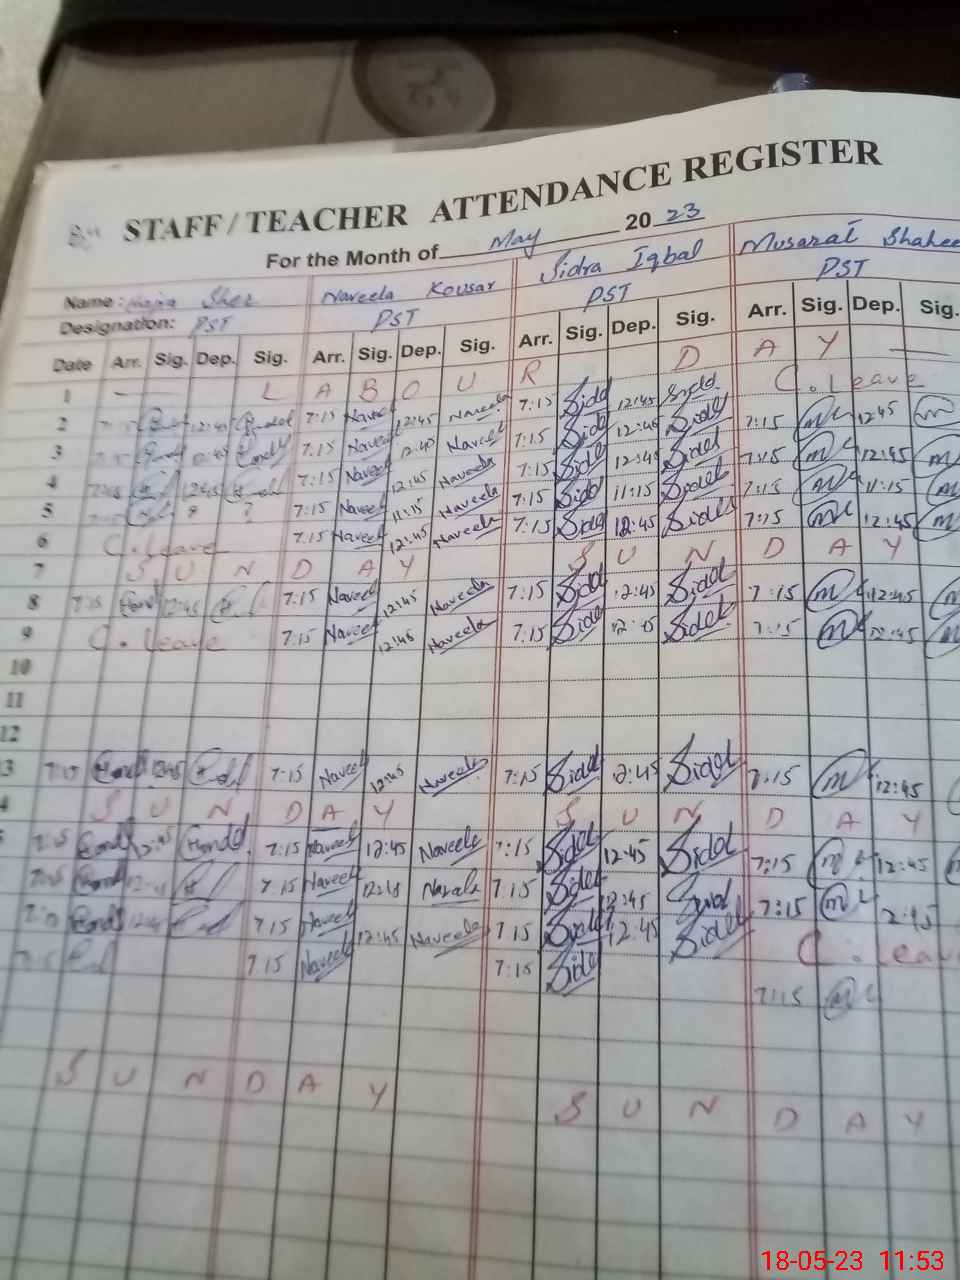 STAFF / TEACHER ATTENDANCE REGISTER
For the Month of May 2023
Name: Sher Naveela Kousar Sidra Iqbal Musarat Shahee
Designation: PST PST PST PST
Date Arr. Sig. Dep. Sig. Arr. Sig. Dep. Sig. Arr. Sig. Dep. Sig. Arr. Sig. Dep. Sig.
1 L A B O U R D A Y
2 12:45 7:15 Naveel 12:45 Naveela 7:15 Sidd 12:45 Sidd C. Leave
3 7:15 Naveel 12:45 Naveela 7:15 Sidd 12:45 Sidd 7:15 m 12:45 m
4 7:15 12:45 7:15 Naveel 12:45 Naveela 7:15 Sidd 12:45 Sidd 7:15 m 12:45 m
5 ? ? 7:15 Naveel 11:15 Naveela 7:15 Sidd 11:15 Sidd 7:15 m 11:15 m
6 C. Leave 7:15 Naveel 12:45 Naveela 7:15 Sidd 12:45 Sidd 7:15 m 12:45 m
7 S U N D A Y S U N D A Y
8 7:15 12:45 7:15 Naveel 12:45 Naveela 7:15 Sidd 12:45 Sidd 7:15 m 12:45 m
9 C. Leave 7:15 Naveel 12:45 Naveela 7:15 Sidd 12:45 Sidd 7:15 m 12:45 m
10
11
12
3 7:15 12:45 7:15 Naveel 12:45 Naveela 7:15 Sidd 12:45 Sidd 7:15 m 12:45
4 S U N D A Y S U N D A Y
5 7:15 12:45 7:15 Naveel 12:45 Naveela 7:15 Sidd 12:45 Sidd 7:15 m 12:45 m
7:15 7:15 Naveel 12:45 Naveela 7:15 Sidd 12:45 Sidd 7:15 m 2:45
7:15 12:45 7:15 Naveel 12:45 Naveela 7:15 Sidd 12:45 Sidd C. Leav
7:15 7:15 Naveel 7:15 Sidd 7:15 m
S U N D A Y S U N D A Y
18-05-23 11:53